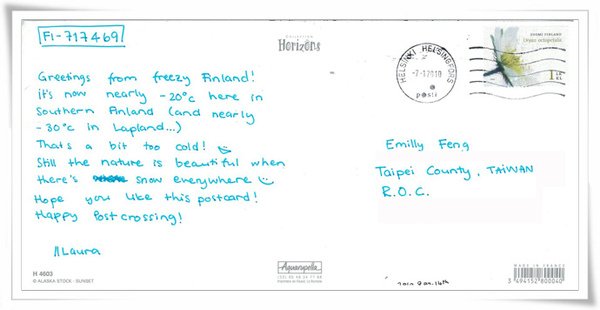 FI-717469
COLLECTION
Horizons
HELSINKI HELSINGFORS
-7-1.2010
posti
SUOMI FINLAND
Dryas octopetala
1
Greetings from freezy Finland!
it's now nearly -20°C here in
Southern Finland (and nearly
-30°C in Lapland...)
Thats a bit too cold!
Still the nature is beautiful when
there's snow everywhere
Hope you like this postcard!
Happy Postcrossing!
//Laura
Emilly Feng
Taipei County, TAIWAN
R.O.C.
H 4603
© ALASKA STOCK - SUNSET
Aquarupella
MADE IN FRANCE
3 494152 800040